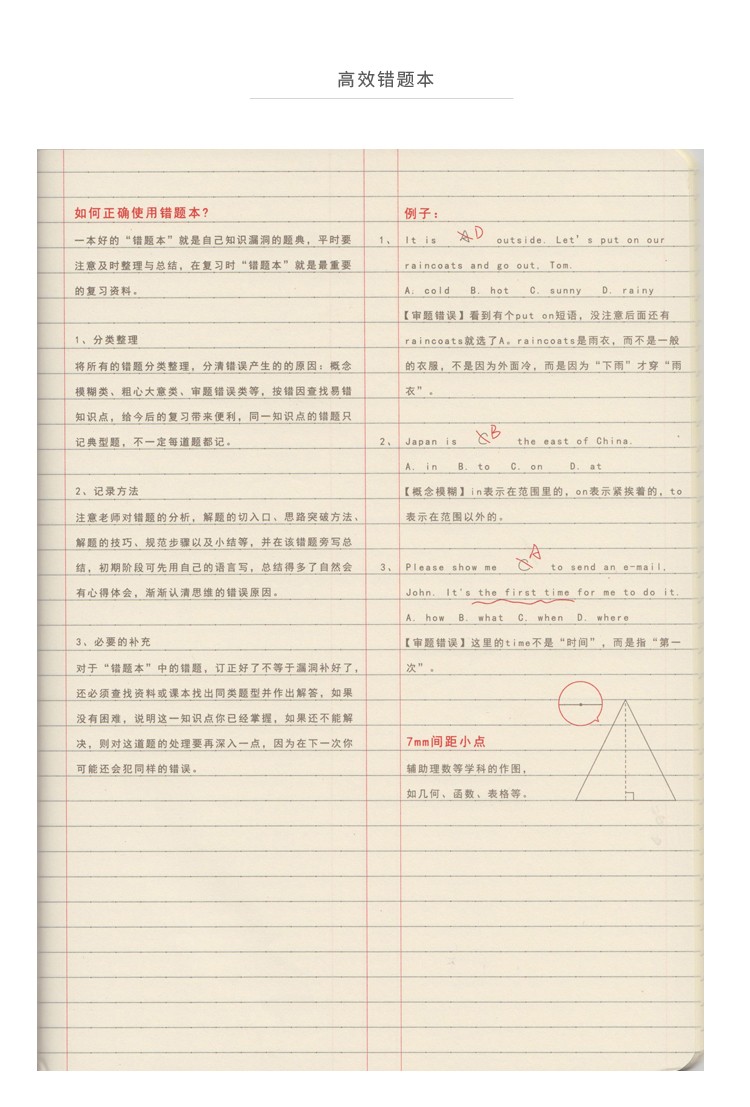 高效错题本
如何正确使用错题本?
一本好的“错题本”就是自己知识漏洞的题典，平时要
注意及时整理与总结，在复习时“错题本”就是最重要
的复习资料。
1、分类整理
将所有的错题分类整理，分清错误产生的的原因：概念
模糊类、粗心大意类、审题错误类等，按错因查找易错
知识点，给今后的复习带来便利，同一知识点的错题只
记典型题，不一定每道题都记。
2、记录方法
注意老师对错题的分析，解题的切入口、思路突破方法、
解题的技巧、规范步骤以及小结等，并在该错题旁写总
结，初期阶段可先用自己的语言写，总结得多了自然会
有心得体会，渐渐认清思维的错误原因。
3、必要的补充
对于“错题本”中的错题，订正好了不等于漏洞补好了，
还必须查找资料或课本找出同类题型并作出解答，如果
没有困难，说明这一知识点你已经掌握，如果还不能解
决，则对这道题的处理要再深入一点，因为在下一次你
可能还会犯同样的错误。
例子：
1、 It is A D outside. Let's put on our
raincoats and go out, Tom.
A. cold B. hot C. sunny D. rainy
【审题错误】看到有个put on短语，没注意后面还有
raincoats就选了A。raincoats是雨衣，而不是一般
的衣服，不是因为外面冷，而是因为“下雨”才穿“雨
衣”。
2、 Japan is C B the east of China.
A. in B. to C. on D. at
【概念模糊】in表示在范围里的，on表示紧挨着的，to
表示在范围以外的。
3、 Please show me C A to send an e-mail,
John. It's the first time for me to do it.
A. how B. what C. when D. where
【审题错误】这里的time不是“时间”，而是指“第一
次”。
7mm间距小点
辅助理数等学科的作图，
如几何、函数、表格等。